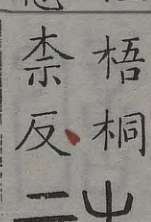 梧桐
柰反